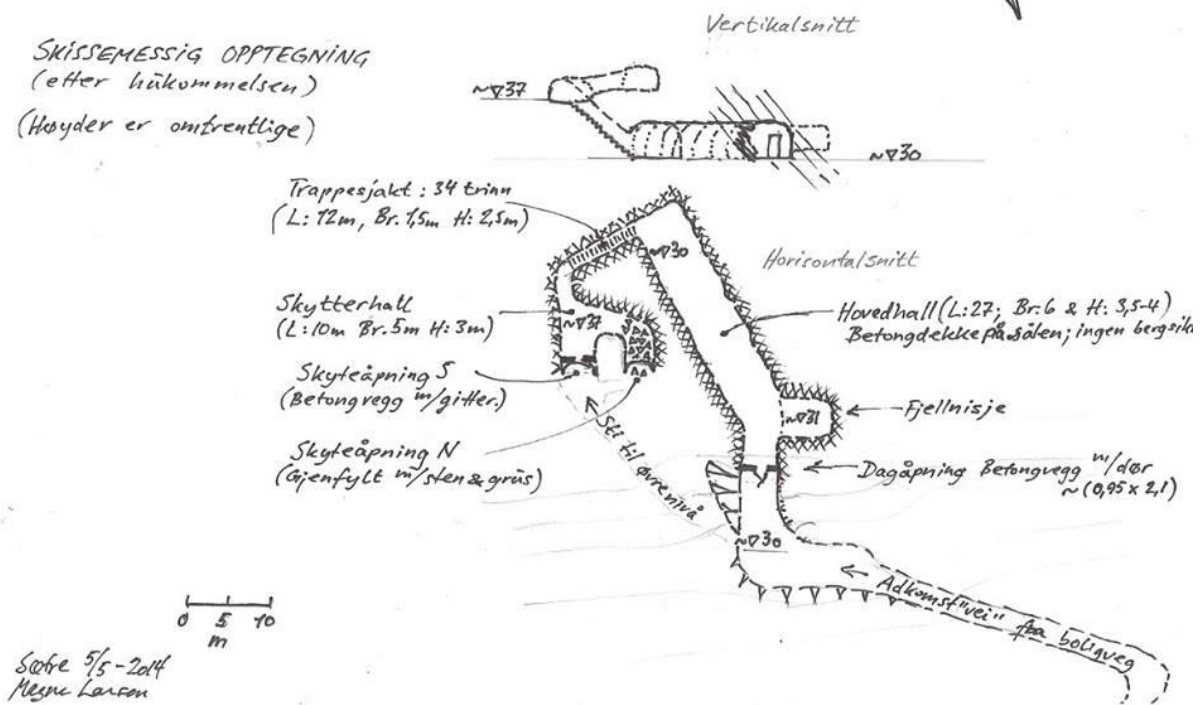 Vertikalsnitt
SKISSEMESSIG OPPTEGNING
(etter hükommelsen)
(Høyder er omtrentlige)
~∇37
~∇30
Trappesjakt: 34 trinn
(L: 12m, Br. 1,5m H: 2,5m)
~∇30
Horisontalsnitt
Skytterhall
(L: 10m Br. 5m H: 3m)
~∇37
Hovedhall (L: 27; Br: 6 & H: 3,5-4)
Betongdekke på sålen; ingen bergsik
Skyteåpning S
(Betongvegg m/gitter.)
Fjellnisje
~∇31
Skyteåpning N
(Gjenfylt m/sten & grüs)
Sti til øvre nivå
Dagåpning Betongvegg m/dør
~(0,95 x 2,1)
~∇30
Adkomst "vei" fra boligveg
0 5 10
m
Sætre 5/5-2014
Magne Larsen